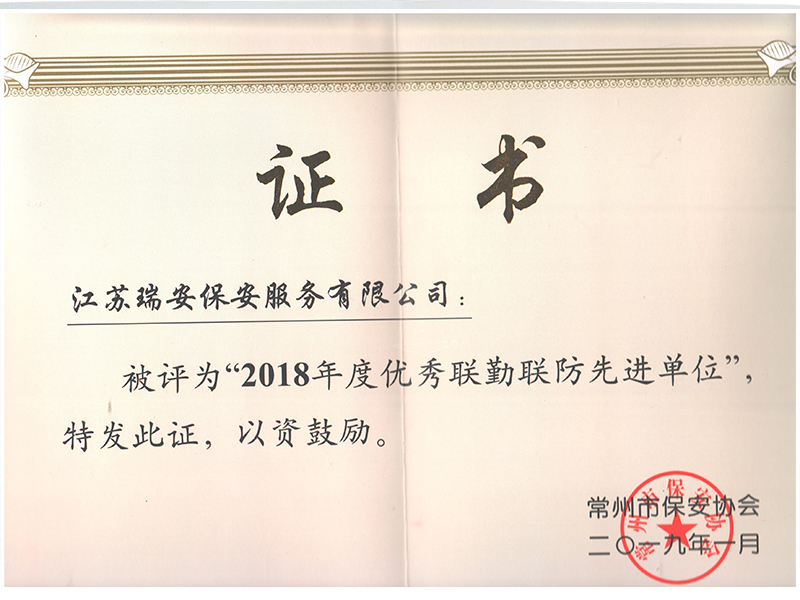 证书
江苏瑞安保安服务有限公司：
被评为“2018年度优秀联勤联防先进单位”，
特发此证，以资鼓励。
常州市保安协会
二〇一九年一月
常州市保安协会